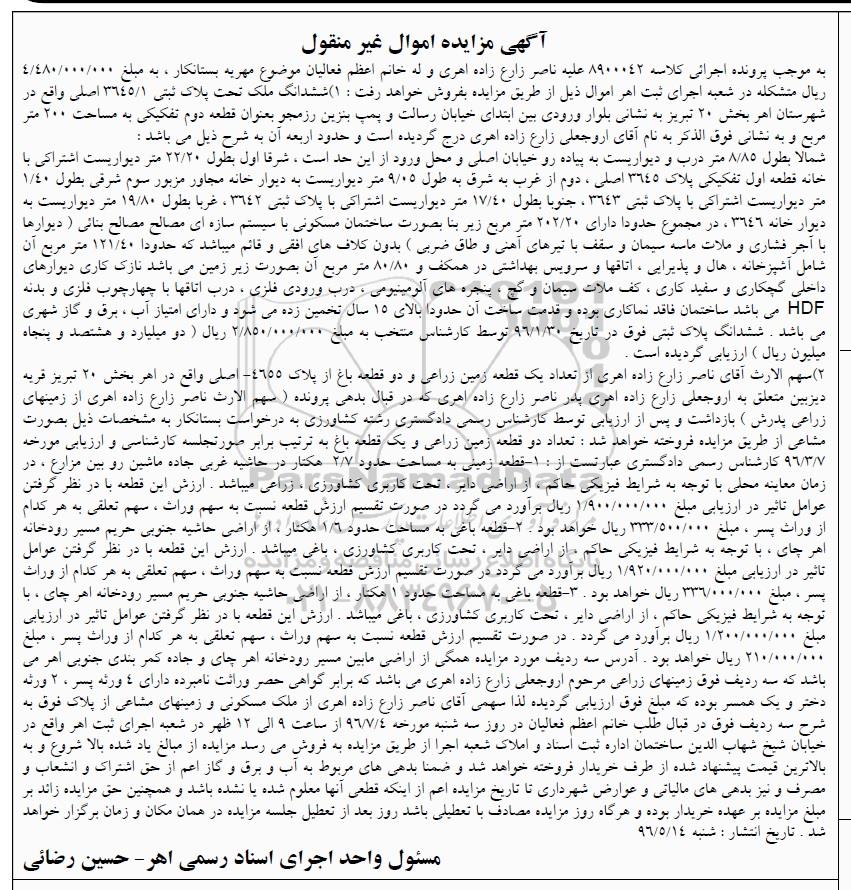 آگهی مزایده اموال غیر منقول
به موجب پرونده اجرائی کلاسه ۸۹۰۰۰۴۲ علیه ناصر زارع زاده اهری و له خانم اعظم فعالیان موضوع مهریه بستانکار ، به مبلغ ۴/۴۸۰/۰۰۰/۰۰۰
ریال متشکله در شعبه اجرای ثبت اهر اموال ذیل از طریق مزایده بفروش خواهد رفت : ۱)ششدانگ ملک تحت پلاک ثبتی ۳۶۴۵/۱ اصلی واقع در
شهرستان اهر بخش ۲۰ تبریز به نشانی بلوار ورودی بین ابتدای خیابان رسالت و پمپ بنزین رزمجو بعنوان قطعه دوم تفکیکی به مساحت ۲۰۰ متر
مربع و به نشانی فوق الذکر به نام آقای اروجعلی زارع زاده اهری درج گردیده است و حدود اربعه آن به شرح ذیل می باشد :
شمالا بطول ۸/۸۵ متر درب و دیواریست به پیاده رو خیابان اصلی و محل ورود از این حد است ، شرقا اول بطول ۲۲/۲۰ متر دیواریست اشتراکی با
خانه قطعه اول تفکیکی پلاک ۳۶۴۵ اصلی ، دوم از غرب به شرق به طول ۹/۰۵ متر دیواریست به دیوار خانه مجاور مزبور سوم شرقی بطول ۱/۴۰
متر دیواریست اشتراکی با پلاک ثبتی ۳۶۴۳ ، جنوبا بطول ۱۷/۴۰ متر دیواریست اشتراکی با پلاک ثبتی ۳۶۴۲ ، غربا بطول ۱۹/۸۰ متر دیواریست به
دیوار خانه ۳۶۴۶ ، در مجموع حدودا دارای ۲۰۲/۲۰ متر مربع زیر بنا بصورت ساختمان مسکونی با سیستم سازه ای مصالح مصالح بنائی ( دیوارها
با آجر فشاری و ملات ماسه سیمان و سقف با تیرهای آهنی و طاق ضربی ) بدون کلاف های افقی و قائم میباشد که حدودا ۱۲۱/۴۰ متر مربع آن
شامل آشپزخانه ، هال و پذیرایی ، اتاقها و سرویس بهداشتی در همکف و ۸۰/۸۰ متر مربع آن بصورت زیر زمین می باشد نازک کاری دیوارهای
داخلی گچکاری و سفید کاری ، کف ملات سیمان و گچ ، پنجره های آلومینیومی ، درب ورودی فلزی ، درب اتاقها با چهارچوب فلزی و بدنه
HDF می باشد ساختمان فاقد نماکاری بوده و قدمت ساخت آن حدودا بالای ۱۵ سال تخمین زده می شود و دارای امتیاز آب ، برق و گاز شهری
می باشد . ششدانگ پلاک ثبتی فوق در تاریخ ۹۶/۱/۳۰ توسط کارشناس منتخب به مبلغ ۲/۸۵۰/۰۰۰/۰۰۰ ریال ( دو میلیارد و هشتصد و پنجاه
میلیون ریال ) ارزیابی گردیده است .
۲)سهم الارث آقای ناصر زارع زاده اهری از تعداد یک قطعه زمین زراعی و دو قطعه باغ از پلاک ۴۶۵۵- اصلی واقع در اهر بخش ۲۰ تبریز قریه
دیزبین متعلق به اروجعلی زارع زاده اهری پدر ناصر زارع زاده اهری که در قبال بدهی پرونده ( سهم الارث ناصر زارع زاده اهری از زمینهای
زراعی پدرش ) بازداشت و پس از ارزیابی توسط کارشناس رسمی دادگستری رشته کشاورزی به درخواست بستانکار به مشخصات ذیل بصورت
مشاعی از طریق مزایده فروخته خواهد شد : تعداد دو قطعه زمین زراعی و یک قطعه باغ به ترتیب برابر صورتجلسه کارشناسی و ارزیابی مورخه
۹۶/۳/۷ کارشناس رسمی دادگستری عبارتست از : ۱-قطعه زمینی به مساحت حدود ۲/۷ هکتار در حاشیه غربی جاده ماشین رو بین مزارع ، در
زمان معاینه محلی با توجه به شرایط فیزیکی حاکم ، از اراضی دایر ، تحت کاربری کشاورزی ، زراعی میباشد . ارزش این قطعه با در نظر گرفتن
عوامل تاثیر در ارزیابی مبلغ ۱/۹۰۰/۰۰۰/۰۰۰ ریال برآورد می گردد در صورت تقسیم ارزش قطعه نسبت به سهم وراث ، سهم تعلقی به هر کدام
از وراث پسر ، مبلغ ۳۳۳/۵۰۰/۰۰۰ ریال خواهد بود . ۲-قطعه باغی به مساحت حدود ۱/۶ هکتار ، از اراضی حاشیه جنوبی حریم مسیر رودخانه
اهر چای ، با توجه به شرایط فیزیکی حاکم ، از اراضی دایر ، تحت کاربری کشاورزی ، باغی میباشد . ارزش این قطعه با در نظر گرفتن عوامل
تاثیر در ارزیابی مبلغ ۱/۹۲۰/۰۰۰/۰۰۰ ریال برآورد می گردد در صورت تقسیم ارزش قطعه نسبت به سهم وراث ، سهم تعلقی به هر کدام از وراث
پسر ، مبلغ ۳۳۶/۰۰۰/۰۰۰ ریال خواهد بود . ۳-قطعه باغی به مساحت حدود ۱ هکتار ، از اراضی حاشیه جنوبی حریم مسیر رودخانه اهر چای ، با
توجه به شرایط فیزیکی حاکم ، از اراضی دایر ، تحت کاربری کشاورزی ، باغی میباشد . ارزش این قطعه با در نظر گرفتن عوامل تاثیر در ارزیابی
مبلغ ۱/۲۰۰/۰۰۰/۰۰۰ ریال برآورد می گردد . در صورت تقسیم ارزش قطعه نسبت به سهم وراث ، سهم تعلقی به هر کدام از وراث پسر ، مبلغ
۲۱۰/۰۰۰/۰۰۰ ریال خواهد بود . آدرس سه ردیف مورد مزایده همگی از اراضی مابین مسیر رودخانه اهر چای و جاده کمر بندی جنوبی اهر می
باشد که سه ردیف فوق زمینهای زراعی مرحوم اروجعلی زارع زاده اهری می باشد که برابر گواهی حصر وراثت نامبرده دارای ۴ ورثه پسر ، ۲ ورثه
دختر و یک همسر بوده که مبلغ فوق ارزیابی گردیده لذا سهمی آقای ناصر زارع زاده اهری از ملک مسکونی و زمینهای مشاعی از پلاک فوق به
شرح سه ردیف فوق در قبال طلب خانم اعظم فعالیان در روز سه شنبه مورخه ۹۶/۷/۴ از ساعت ۹ الی ۱۲ ظهر در شعبه اجرای ثبت اهر واقع در
خیابان شیخ شهاب الدین ساختمان اداره ثبت اسناد و املاک شعبه اجرا از طریق مزایده به فروش می رسد مزایده از مبالغ یاد شده بالا شروع و به
بالاترین قیمت پیشنهاد شده از طرف خریدار فروخته خواهد شد و ضمنا بدهی های مربوط به آب و برق و گاز اعم از حق اشتراک و انشعاب و
مصرف و نیز بدهی های مالیاتی و عوارض شهرداری تا تاریخ مزایده اعم از اینکه قطعی آنها معلوم شده یا نشده باشد و همچنین حق مزایده زائد بر
مبلغ مزایده بر عهده خریدار بوده و هرگاه روز مزایده مصادف با تعطیلی باشد روز بعد از تعطیل جلسه مزایده در همان مکان و زمان برگزار خواهد
شد . تاریخ انتشار : شنبه ۹۶/۵/۱۴
مسئول واحد اجرای اسناد رسمی اهر- حسین رضائی
ParsNamadData
پایگاه اطلاع رسانی مناقصه و مزایده
۰۲۱-۸۸۳۴۹۶۷۰-۵